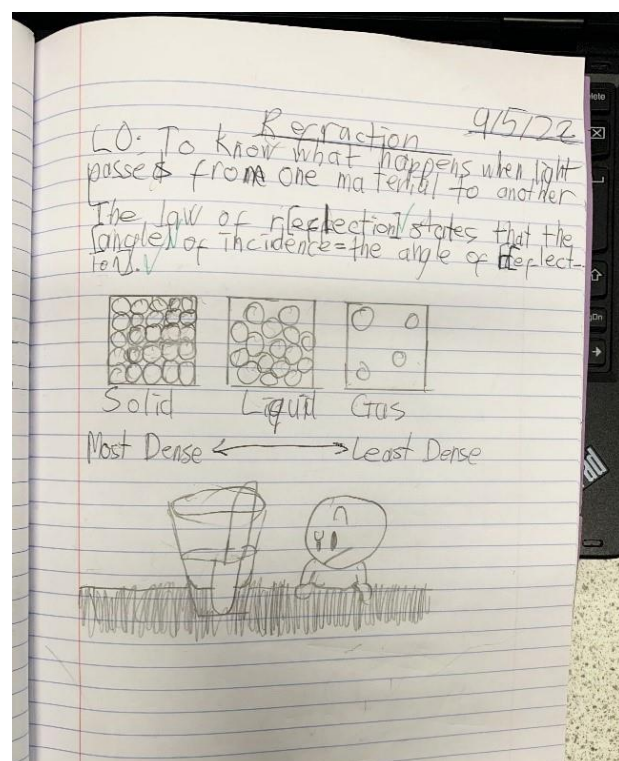 Refraction 9/5/22
LO: To know what happens when light
passes from one material to another
The law of reflection states that the
angle of incidence = the angle of reflect-
ion.
Solid Liquid Gas
Most Dense Least Dense